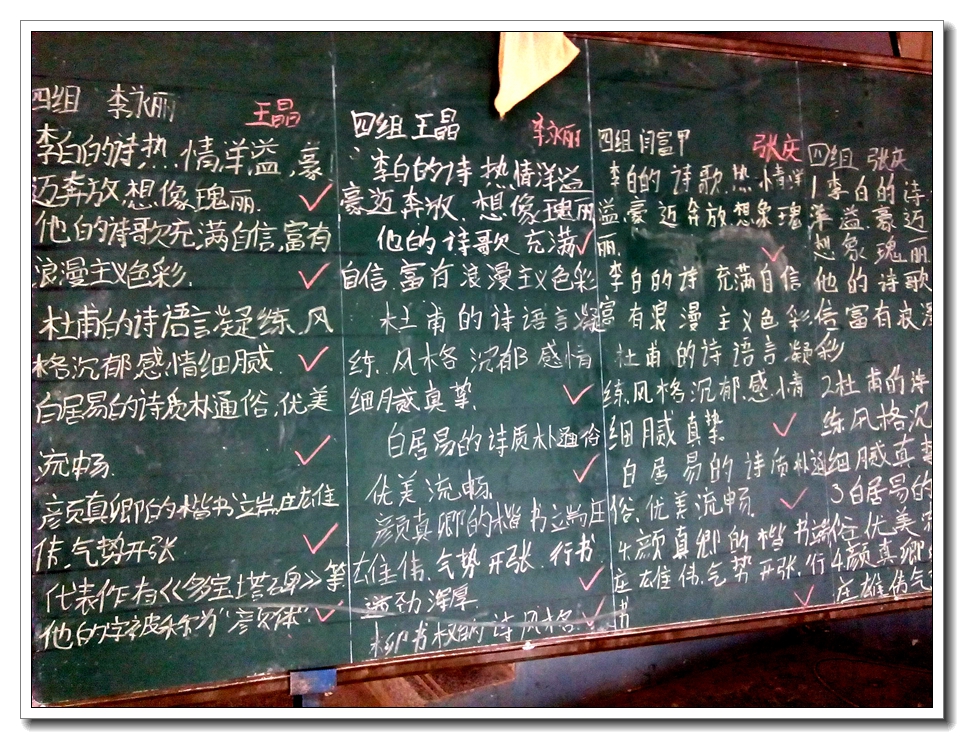 四组 李永丽 王晶
李白的诗热.情洋溢,豪
迈奔放想像瑰丽.
他的诗歌充满自信,富有
浪漫主义色彩.
杜甫的诗语言凝练、风
格沉郁感情细腻.
白居易的诗质朴通俗,优美
流畅.
颜真卿的楷书立端庄雄
伟,气势开张.
代表作有《多宝塔碑》等
他的字被称为"颜体"
四组 王晶 李永丽
李白的诗热情洋溢
豪迈奔放,想像瑰丽
他的诗歌充满
自信,富有浪漫主义色彩
杜甫的诗语言凝
练,风格沉郁感情
细腻真挚.
白居易的诗质朴通俗
优美流畅.
颜真卿的楷书立端庄
雄伟,气势开张.行书
遒劲浑厚
四组 闫富甲 张庆
李白的诗歌热情洋
溢,豪迈奔放想象瑰
丽.
李白的诗充满自信
富有浪漫主义色彩
杜甫的诗语言凝
练风格沉郁.感情
细腻真挚
白居易的诗质朴通
俗,优美流畅
4颜真卿的楷书端
庄雄伟,气势开张,行
书
四组 张庆
1李白的诗
洋溢豪迈
想象瑰丽
他的诗歌
信富有浪漫
彩
2杜甫的诗
练风格沉
细腻真挚
3白居易的
俗优美
4颜真卿
庄雄伟气